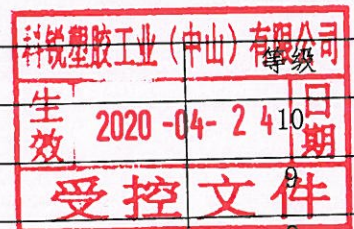 科锐塑胶工业（中山）有限公司
等级
生效 2020-04-24 日期
10
受控文件
9